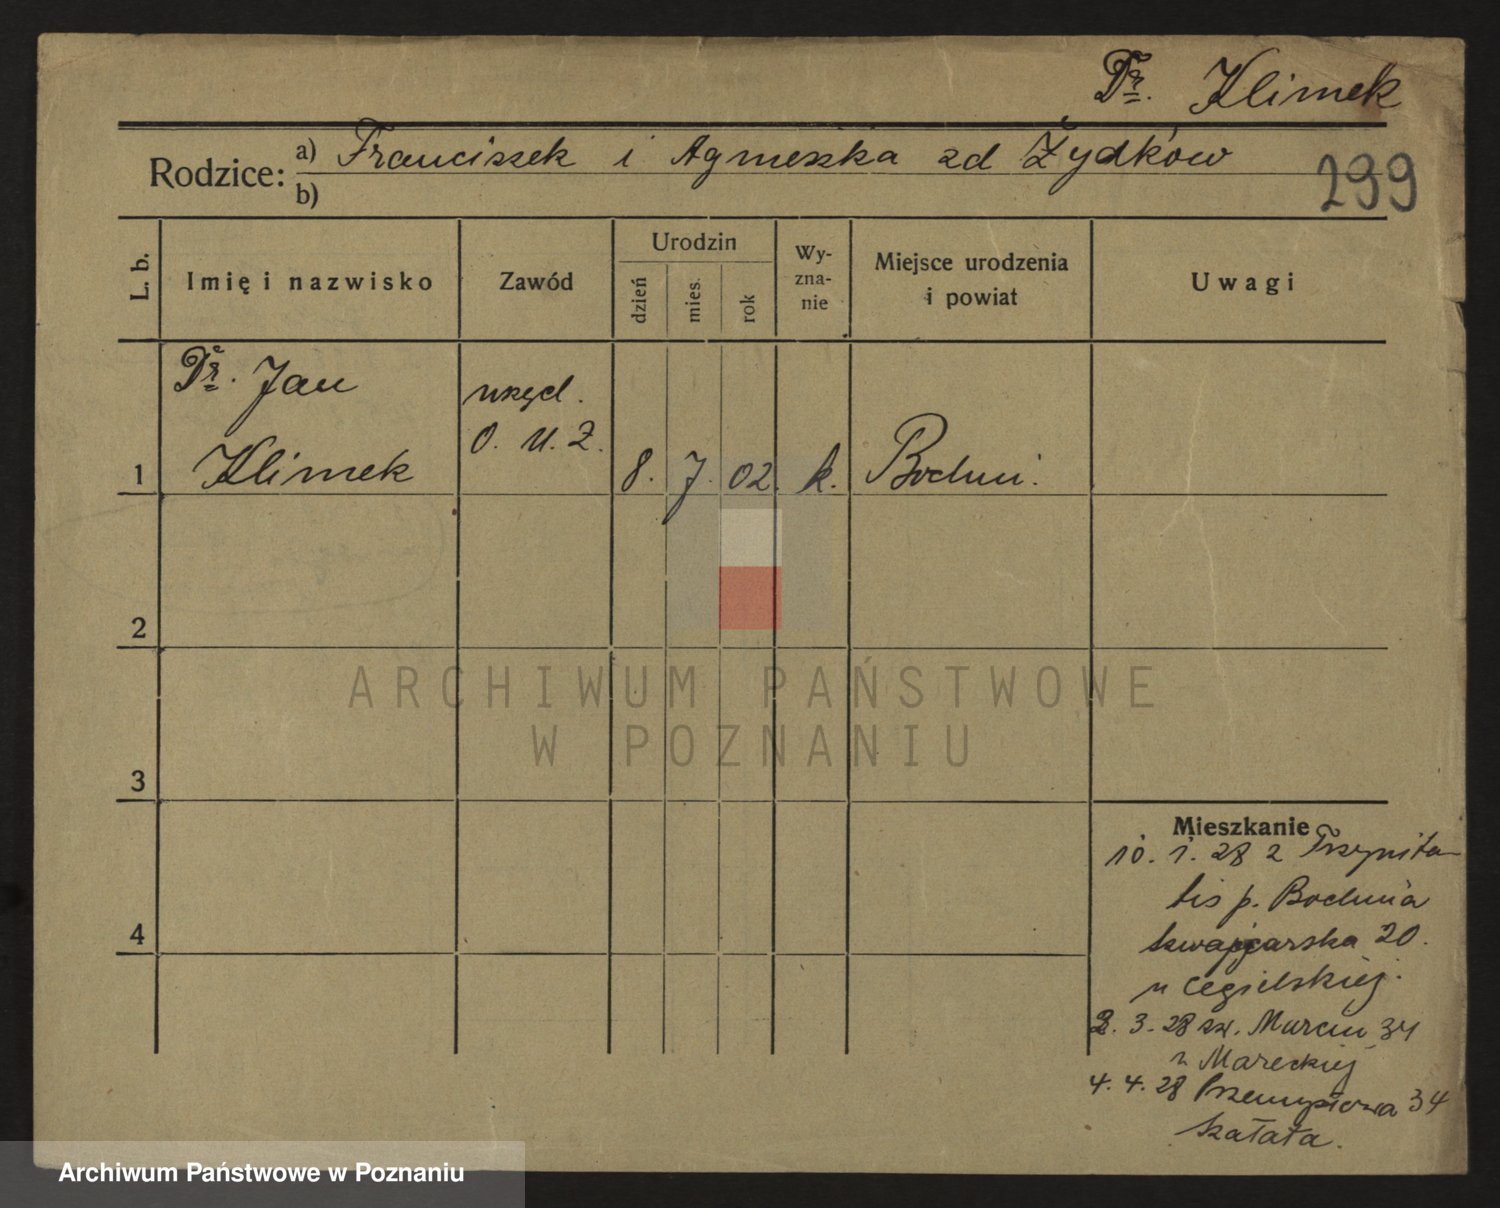 Dr. Klimek
Rodzice: a) Franciszek i Agnieszka zd Żydków
b)
299
L. b.
Imię i nazwisko
Zawód
Urodzin
dzień
mies.
rok
Wy-
zna-
nie
Miejsce urodzenia
i powiat
Uwagi
Dr. Jan
Klimek
urzęd.
O. U. Z.
1
8. 7. 02. k. Bochni.
2
3
4
ARCHIWUM PAŃSTWOWE
W POZNANIU
Mieszkanie
10. 1. 28 z Trzynita-
tis p. Bochnia
20.
u Cegielskiej.
2. 3. 28 św. Marcin 34
u Mareckiej
4. 4. 28 Przemysłowa 34
Szałata.
Archiwum Państwowe w Poznaniu